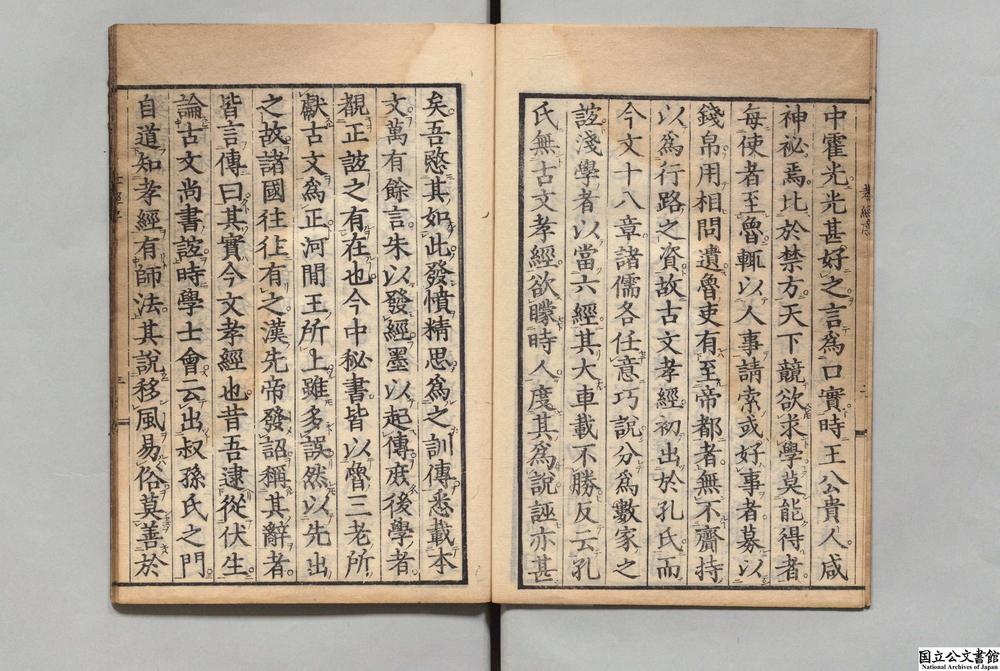 中霍光光甚好之言爲口實時王公貴人咸
神祕焉比於禁方天下競欲求學莫能得者
每使者至魯輒以人事請索或好事者募以
錢帛用相問遺魯吏有至帝都者無不齎持
以爲行路之資故古文孝經初出於孔氏而
今文十八章諸儒各任意巧說分爲數家之
誼淺學者以當六經其大車載不勝反云孔
氏無古文孝經欲矇時人度其爲說誣亦甚
矣吾愍其如此發憤精思爲之訓傳悉載本
文萬有餘言朱以發經墨以起傳庶後學者
覩正誼之有在也今中秘書皆以魯三老所
獻古文爲正河閒王所上雖多誤然以先出
之故諸國往往有之漢先帝發詔稱其辭者
皆言傳曰其實今文孝經也昔吾逮從伏生
論古文尚書誼時學士會云出叔孫氏之門
自道知孝經有師法其說移風易俗莫善於
二
三
国立公文書館
National Archives of Japan